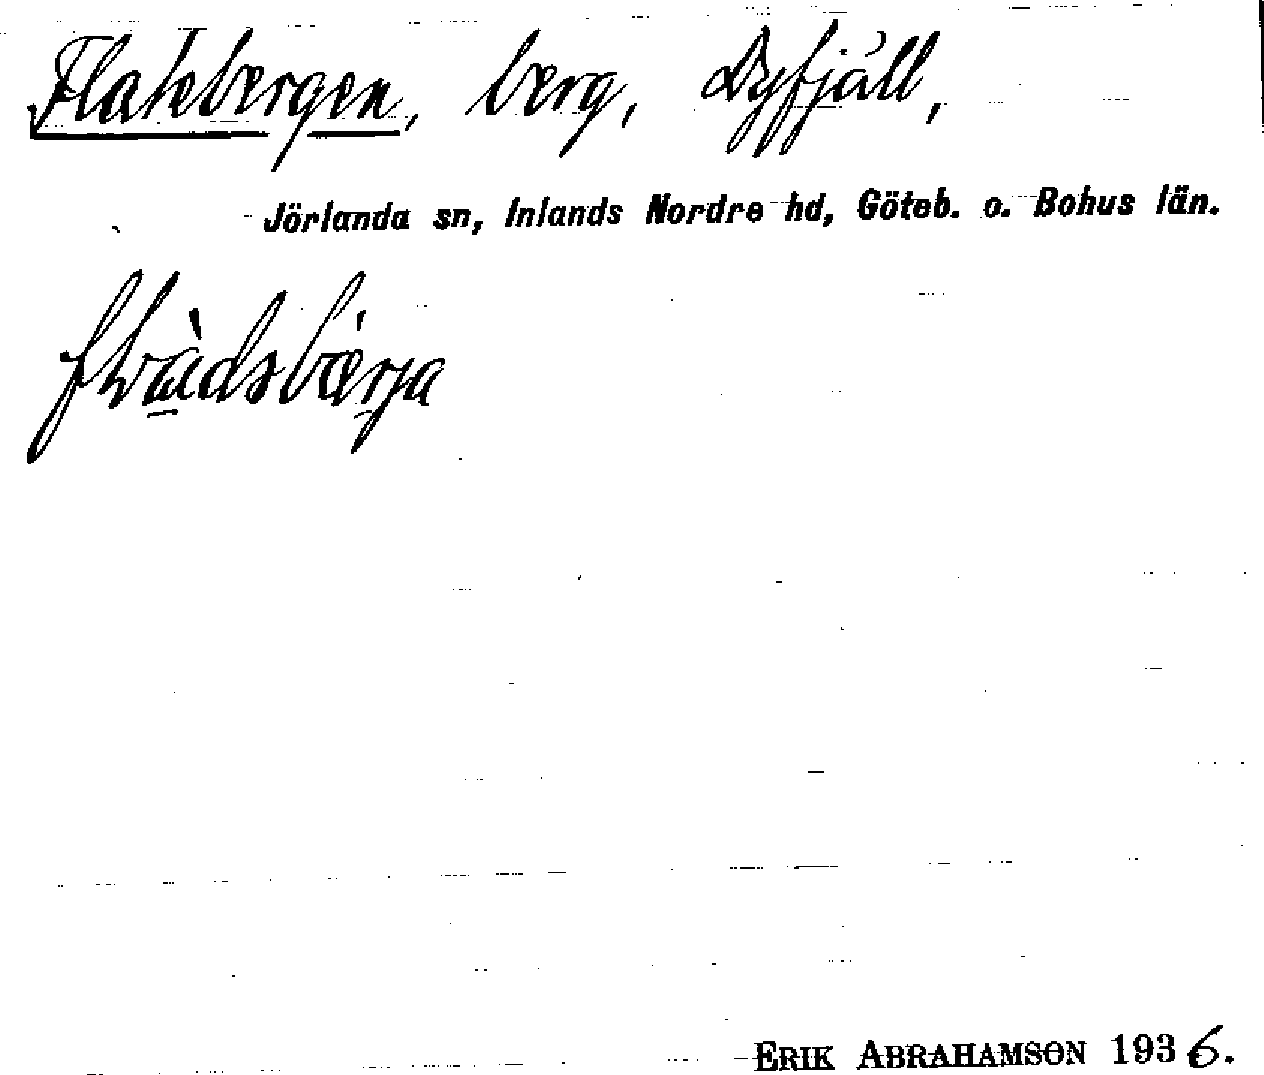 Flatebergen, berg, Dyfjäll,
Jörlanda sn, Inlands Nordre hd, Göteb. o. Bohus län.
ERIK ABRAHAMSON 1936.